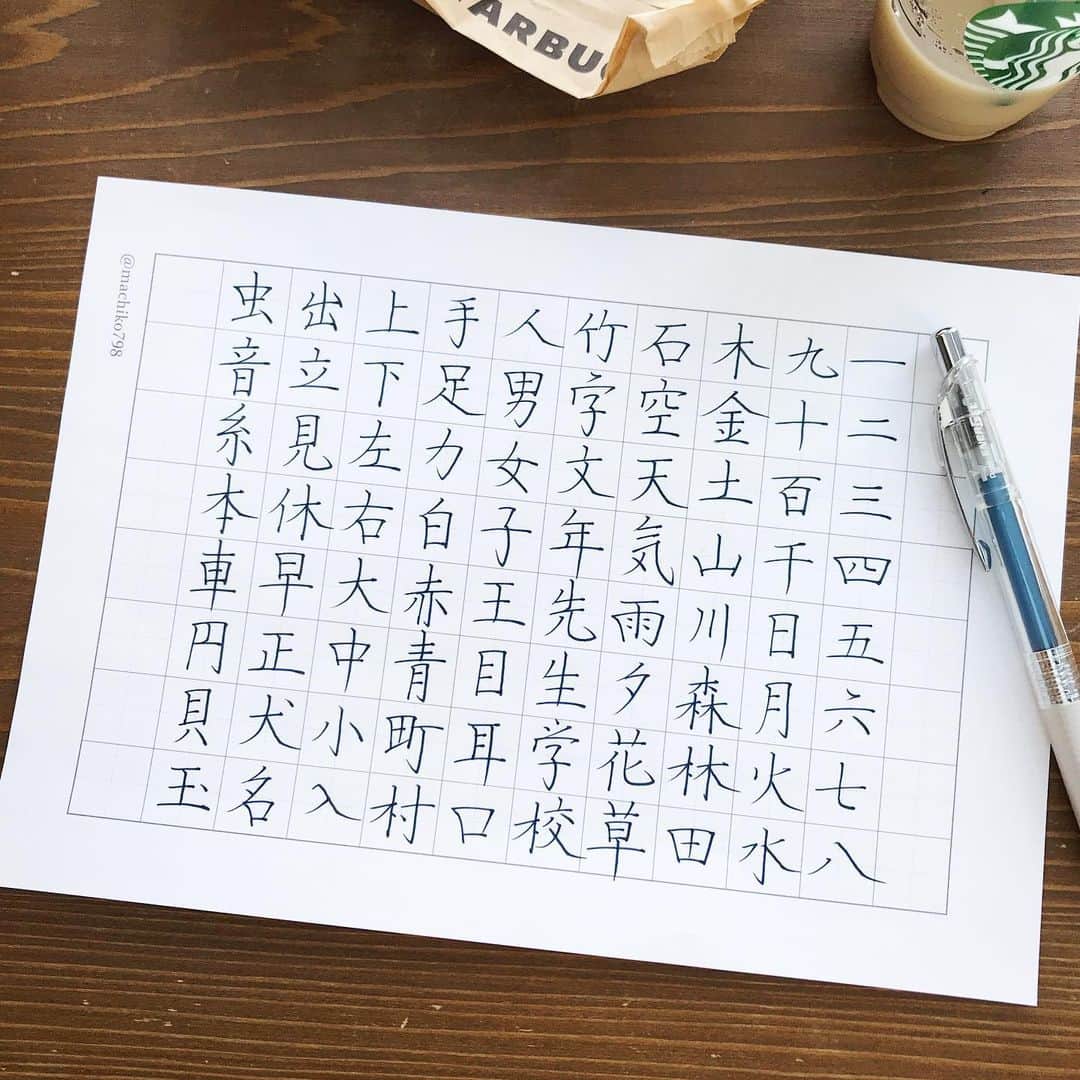 一二三四五六七八
九十百千日月火水
木金土山川森林田
石空天気雨夕花草
竹字文年先生学校
人男女子王目耳口
手足力白赤青町村
上下左右大中小入
出立見休早正犬名
虫音糸本車円貝玉
@machiko798
TARBU